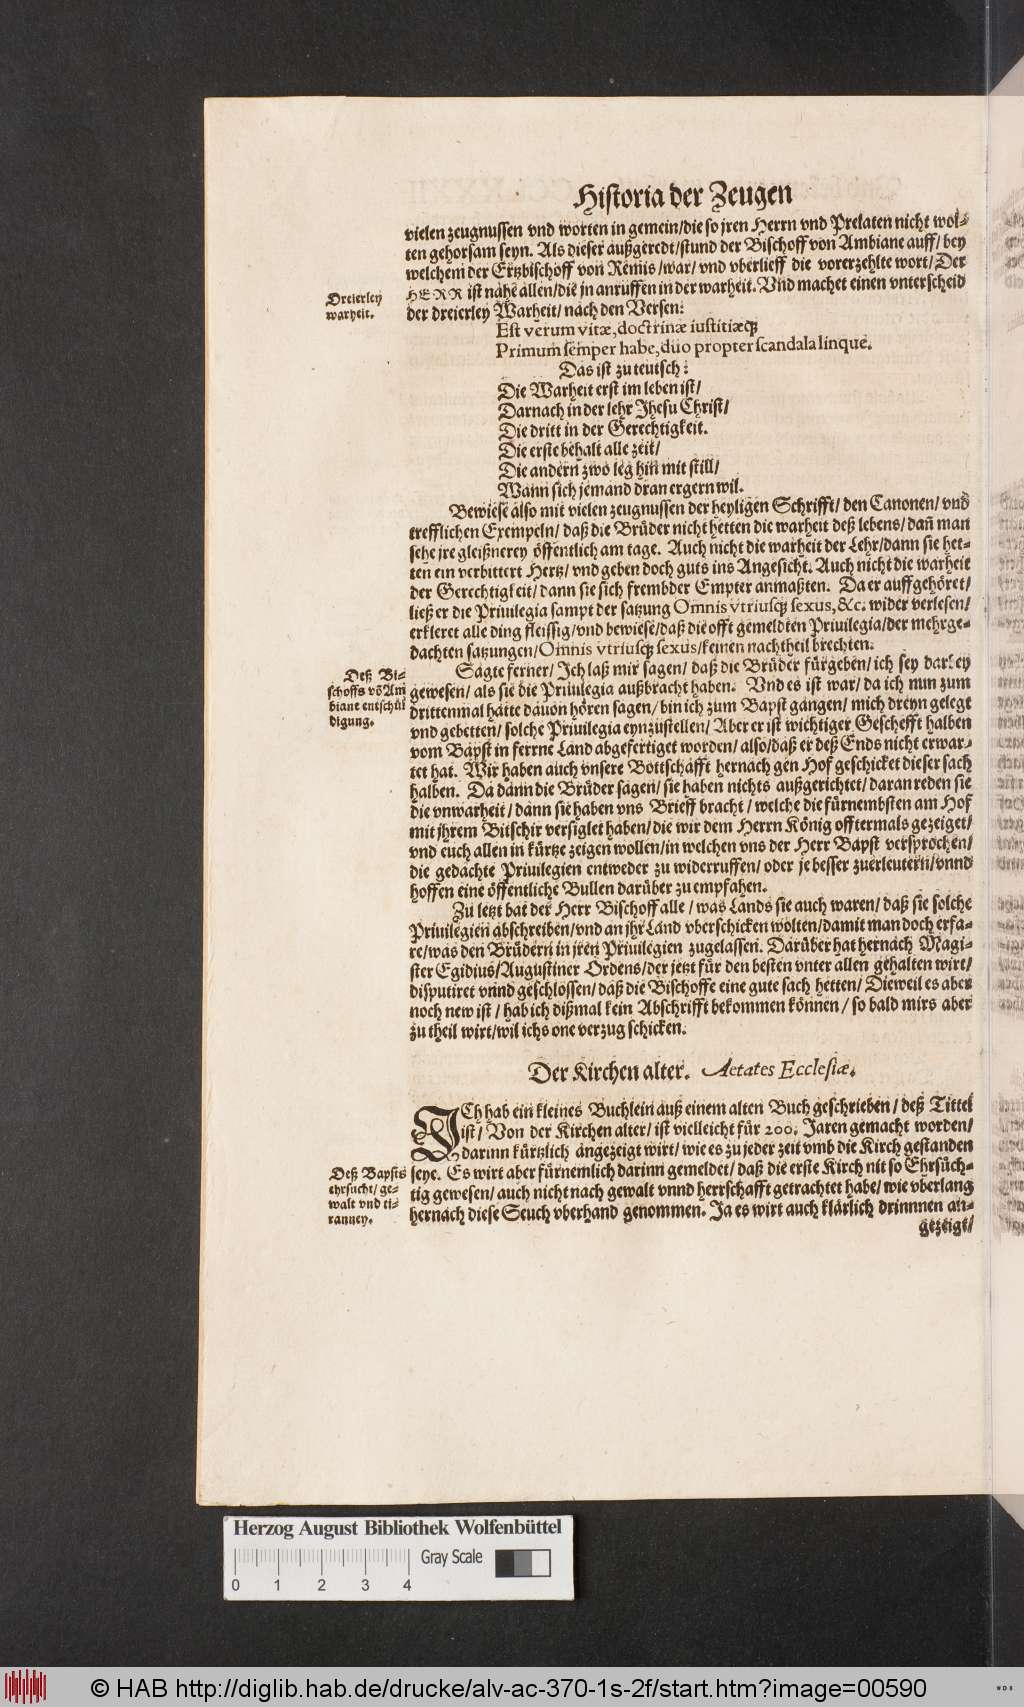 Historia der Zeugen
vielen zeugnussen vnd worten in gemein/die so jren Herrn vnd Prelaten nicht wol-
ten gehorsam seyn. Als dieser außgeredt/stund der Bischoff von Ambiane auff/ bey
welchem der Ertzbischoff von Remis/war/ vnd vberlieff die vorerzehlte wort/Der
HERR ist nahē allen/die jn anruffen in der warheit. Vnd machet einen vnterscheid
der dreierley Warheit/ nach den Versen:
Dreierley
warheit.
Est verum vitæ, doctrinæ iustitiæq́;
Primum semper habe, duo propter scandala linque.
Das ist zu teutsch:
Die Warheit erst im leben ist/
Darnach in der lehr Jhesu Christ/
Die dritt in der Gerechtigkeit.
Die erste behalt alle zeit/
Die andern zwo leg hin mit still/
Wann sich jemand dran ergern wil.
Bewiese also mit vielen zeugnussen der heyligen Schrifft/ den Canonen/ vnd
trefflichen Exempeln/ daß die Brüder nicht hetten die warheit deß lebens/ dañ man
sehe jre gleißnerey öffentlich am tage. Auch nicht die warheit der Lehr/dann sie het-
ten ein verbittert Hertz/ vnd geben doch guts ins Angesicht. Auch nicht die warheit
der Gerechtigkeit/ dann sie sich frembder Empter anmaßten. Da er auffgehöret/
ließ er die Priuilegia sampt der satzung Omnis vtriusq́; sexus, &c. wider verlesen/
erkleret alle ding fleissig/vnd bewiese/daß die offt gemeldten Priuilegia/der mehrge-
dachten satzungen/Omnis vtriusq́; sexus/keinen nachtheil brechten.
Sagte ferner/ Ich laß mir sagen/ daß die Brüder fürgeben/ ich sey darbey
gewesen/ als sie die Priuilegia außbracht haben. Vnd es ist war/ da ich nun zum
drittenmal hatte dauon hören sagen/ bin ich zum Bapst gangen/ mich dreyn gelegt
vnd gebetten/ solche Priuilegia eynzustellen/ Aber er ist wichtiger Geschefft halben
vom Bapst in ferrne Land abgefertiget worden/ also/daß er deß Ends nicht erwar-
tet hat. Wir haben auch vnsere Bottschafft hernach gen Hof geschicket dieser sach
halben. Da dann die Brüder sagen/ sie haben nichts außgerichtet/ daran reden sie
die vnwarheit/ dann sie haben vns Brieff bracht/ welche die fürnembsten am Hof
mit jhrem Bitschir versiglet haben/die wir dem Herrn König offtermals gezeiget/
vnd euch allen in kürtze zeigen wollen/in welchen vns der Herr Bapst versprochen/
die gedachte Priuilegien entweder zu widerruffen/ oder je besser zuerleutern/vnnd
hoffen eine öffentliche Bullen darüber zu empfahen.
Deß Bi-
schoffs võ Am
biane entschül
digung.
Zu letzt bat der Herr Bischoff alle/ was Lands sie auch waren/ daß sie solche
Priuilegien abschreiben/vnd an jhr Land vberschicken wolten/damit man doch erfa-
re/was den Brüdern in jren Priuilegien zugelassen. Darüber hat hernach Magi-
ster Egidius/Augustiner Ordens/der jetzt für den besten vnter allen gehalten wirt/
disputiret vnnd geschlossen/ daß die Bischoffe eine gute sach hetten/ Dieweil es aber
noch new ist/ hab ich dißmal kein Abschrifft bekommen können/ so bald mirs aber
zu theil wirt/wil ichs one verzug schicken.
Der Kirchen alter. Aetates Ecclesiæ.
ICh hab ein kleines Buchlein auß einem alten Buch geschrieben/ deß Tittel
ist/ Von der Kirchen alter/ ist vielleicht für 200. Jaren gemacht worden/
darinn kürtzlich angezeigt wirt/ wie es zu jeder zeit vmb die Kirch gestanden
seye. Es wirt aber fürnemlich darinn gemeldet/ daß die erste Kirch nit so Ehrsüch-
tig gewesen/ auch nicht nach gewalt vnnd herrschafft getrachtet habe/ wie vberlang
hernach diese Seuch vberhand genommen. Ja es wirt auch klärlich drinnnen an-
gezeigt/
Deß Bapsts
ehrsucht/ ge-
walt vnd ti-
ranney.
Herzog August Bibliothek Wolfenbüttel
Gray Scale
0 1 2 3 4
© HAB http://diglib.hab.de/drucke/alv-ac-370-1s-2f/start.htm?image=00590